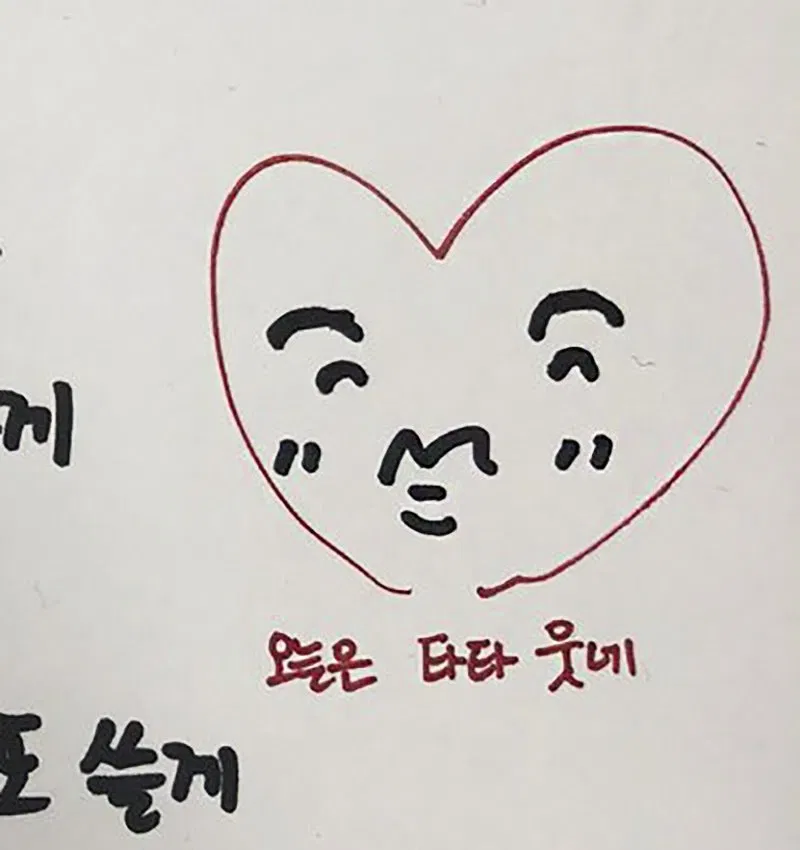 게
오늘은 타타 웃네
또 쓸게